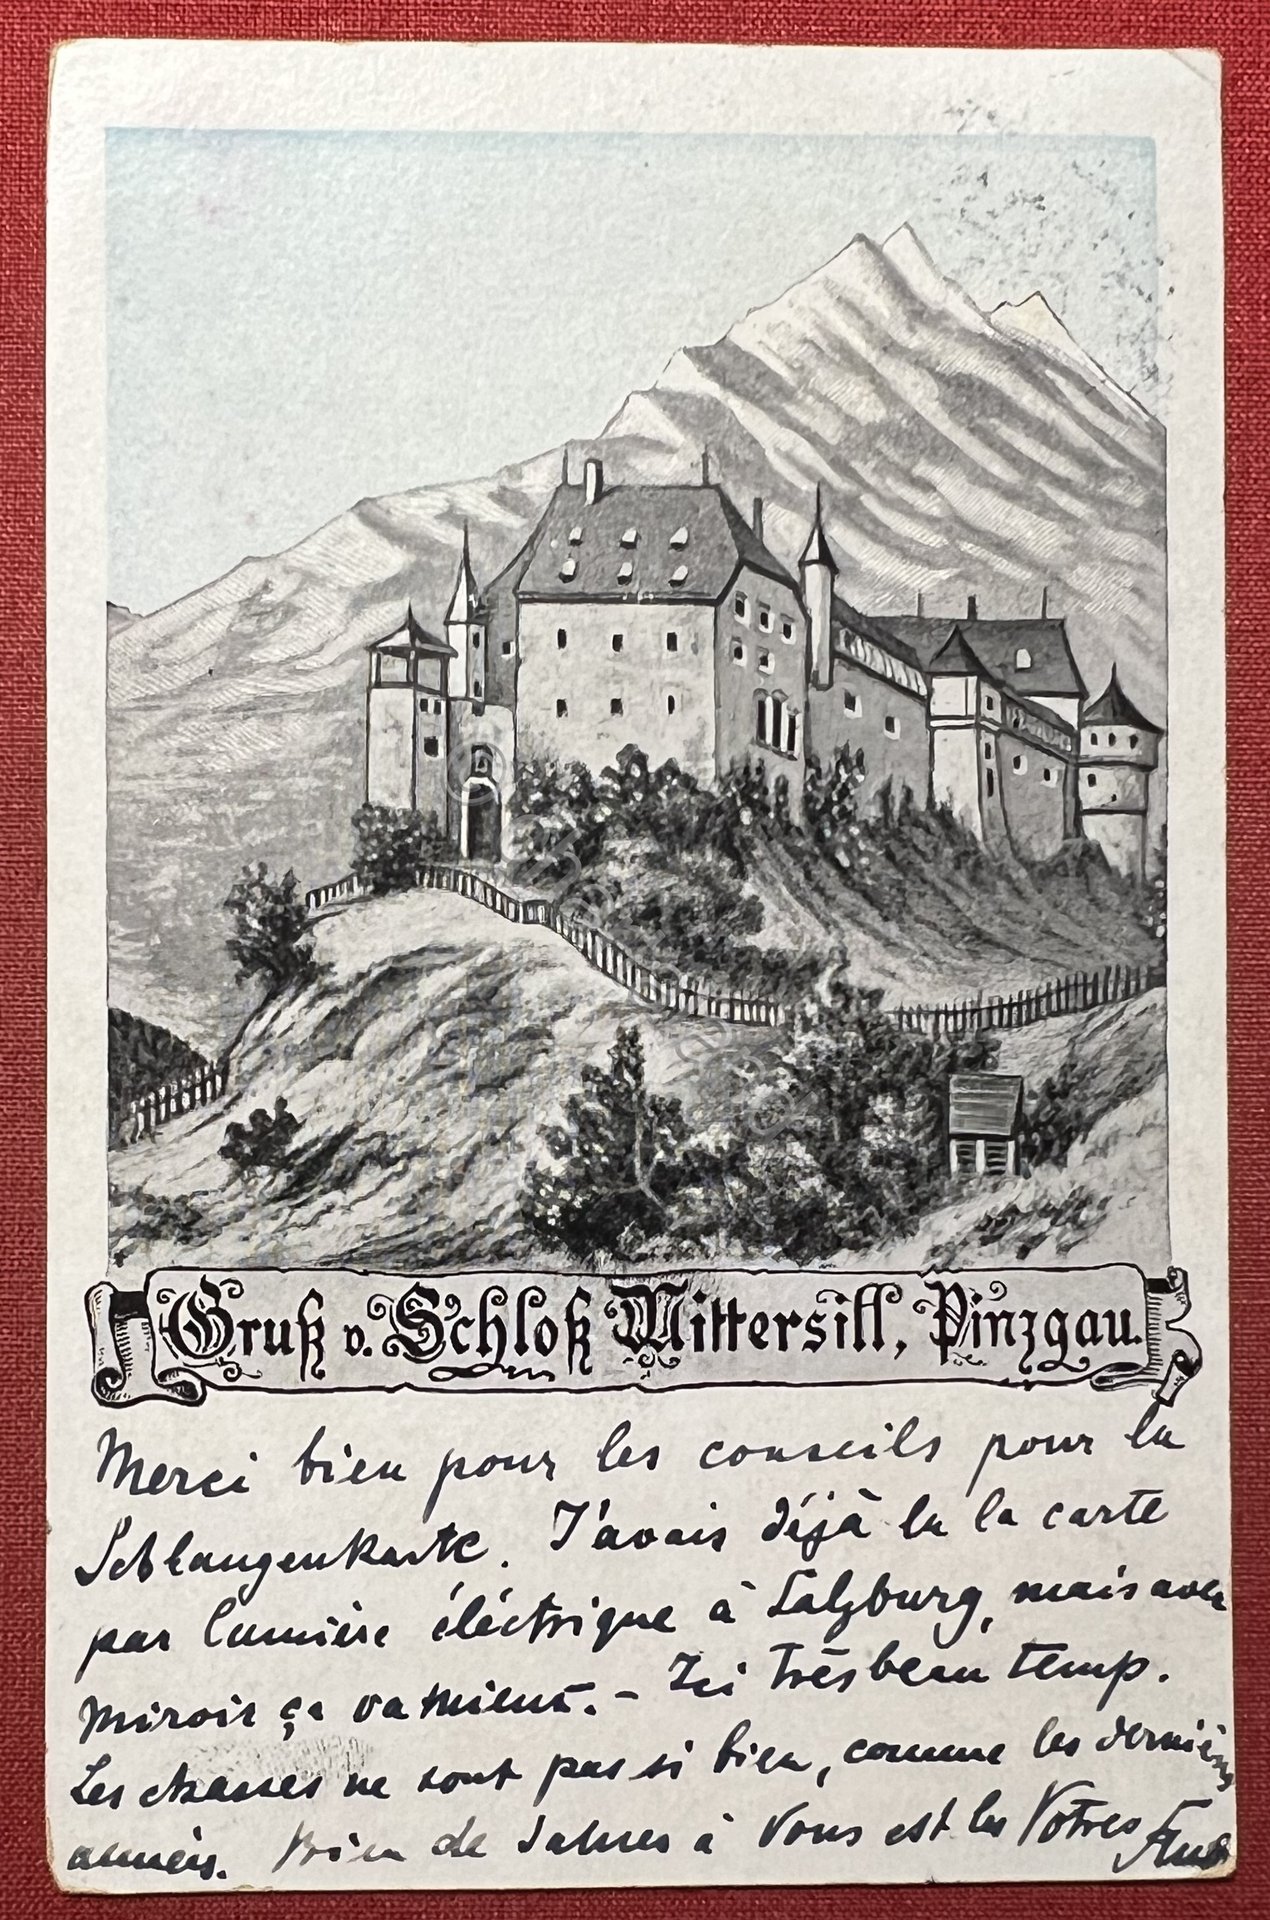 Gruß v. Schloß Mittersill, Pinzgau.
Merci bien pour les conseils pour la
Schlangenkarte. J'avais déjà lu la carte
par lumière éléctrique à Salzburg, mais avec
miroir ça va mieux. - Ici très beau temp.
Les chasses ne sont pas si bien, comme les dernières
années. Bien de à Vous est les Vôtres